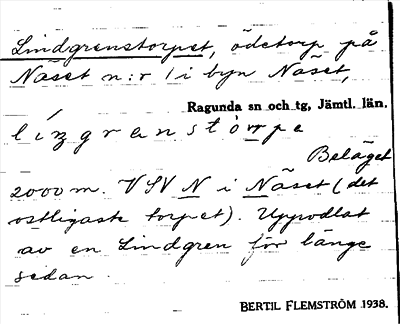 Lindgrenstorpet, ödetorp på
Näset n:r 1 i byn Näset,
Ragunda sn och tg, Jämtl. län.
líŋgrenstòrpe
Beläget
2000 m. VSV N i Näset (det
ostligaste torpet). Uppodlat
av en Lindgren för länge
sedan.
BERTIL FLEMSTRÖM 1938.